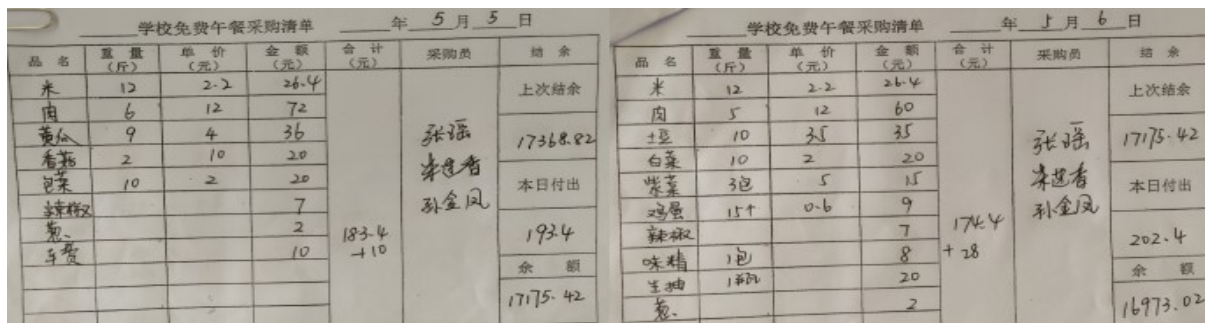 学校免费午餐采购清单 年 5月5日
品名 重量(斤) 单价(元) 金额(元) 合计(元) 采购员 结余
米 12 2.2 26.4 上次结余
肉 6 12 72
黄瓜 9 4 36 张瑶 17368.82
香菇 2 10 20
包菜 10 2 20 本日付出
辣椒 7 孙金凤
葱 2 183.4 193.4
车费 10 +10
余额
17175.42
学校免费午餐采购清单 年 5月6日
品名 重量(斤) 单价(元) 金额(元) 合计(元) 采购员 结余
米 12 2.2 26.4 上次结余
肉 5 12 60
土豆 10 3.5 35 张瑶 17175.42
白菜 10 2 20
紫菜 3包 5 15 本日付出
鸡蛋 15个 0.6 9 孙金凤
辣椒 7 174.4 202.4
味精 1包 8 +28
生抽 1瓶 20 余额
葱 2 16973.02